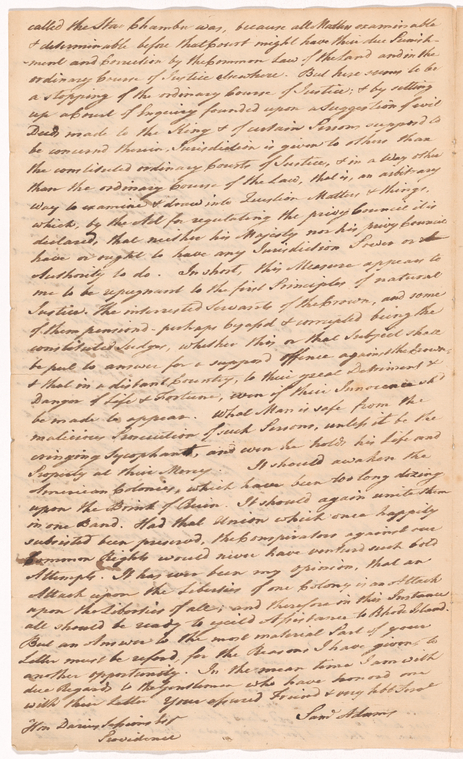 called the Star Chamber was, because all Matters examinable
& determinable before that Court might have their due Punish-
-ment and Correction by the Common Law of the Land and in the
ordinary Course of Justice elsewhere. But here seems to be
a stopping of the ordinary Course of Justice; & by setting
up a Court of Enquiry founded upon a Suggestion of evil
Deeds made to the King & of certain Persons supposd to
be concernd therein, Jurisdiction is given to others than
the constituted ordinary Courts of Justice, & in a Way other
than the ordinary Course of the Law, that is, an arbitrary
way to examine & draw into Question Matters & things,
which, by the Act for regulating the privy Council it is
declared, that neither his Majesty nor his privy Council
have or ought to have any Jurisdiction Power or
Authority to do. In short, this Measure appears to
me to be repugnant to the first Principles of natural
Justice. The interested Servants of the Crown, and some
of them pensiond perhaps byassd & corrupted being the
constituted Judges, whether this or that Subject shall
be put to answer for a supposd Offence against the Crown
& that in a distant Country, to their great Detriment &
Danger of Life & Fortune, even if their Innocence shd
be made to appear. What Man is safe from the
malicious Prosecution of such Persons, unless it be the
cringing Sycophant, and even he holds his Life and
Property at their Mercy. It should awaken the
American Colonies, which have been too long dozing
upon the Brink of Ruin. It should again unite them
in one Band. Had that Union which once happily
subsisted been preserved, the Conspirators against our
Common Rights would never have venturd such bold
Attempts. It has ever been my opinion, that an
Attack upon the Liberties of one Colony is an Attack
upon the Liberties of all; and therefore in this Instance
all should be ready to yield Assistance to Rhode Island.
But an Answer to the most material Part of your
Letter must be referd, for the Reasons I have given, to
another opportunity. In the mean time I am with
due Regard to the Gentlemen who have honord me
with their Letter Your assured Friend & very hbl Servt
Saml Adams
Hon Darius Sessions Esq
Providence